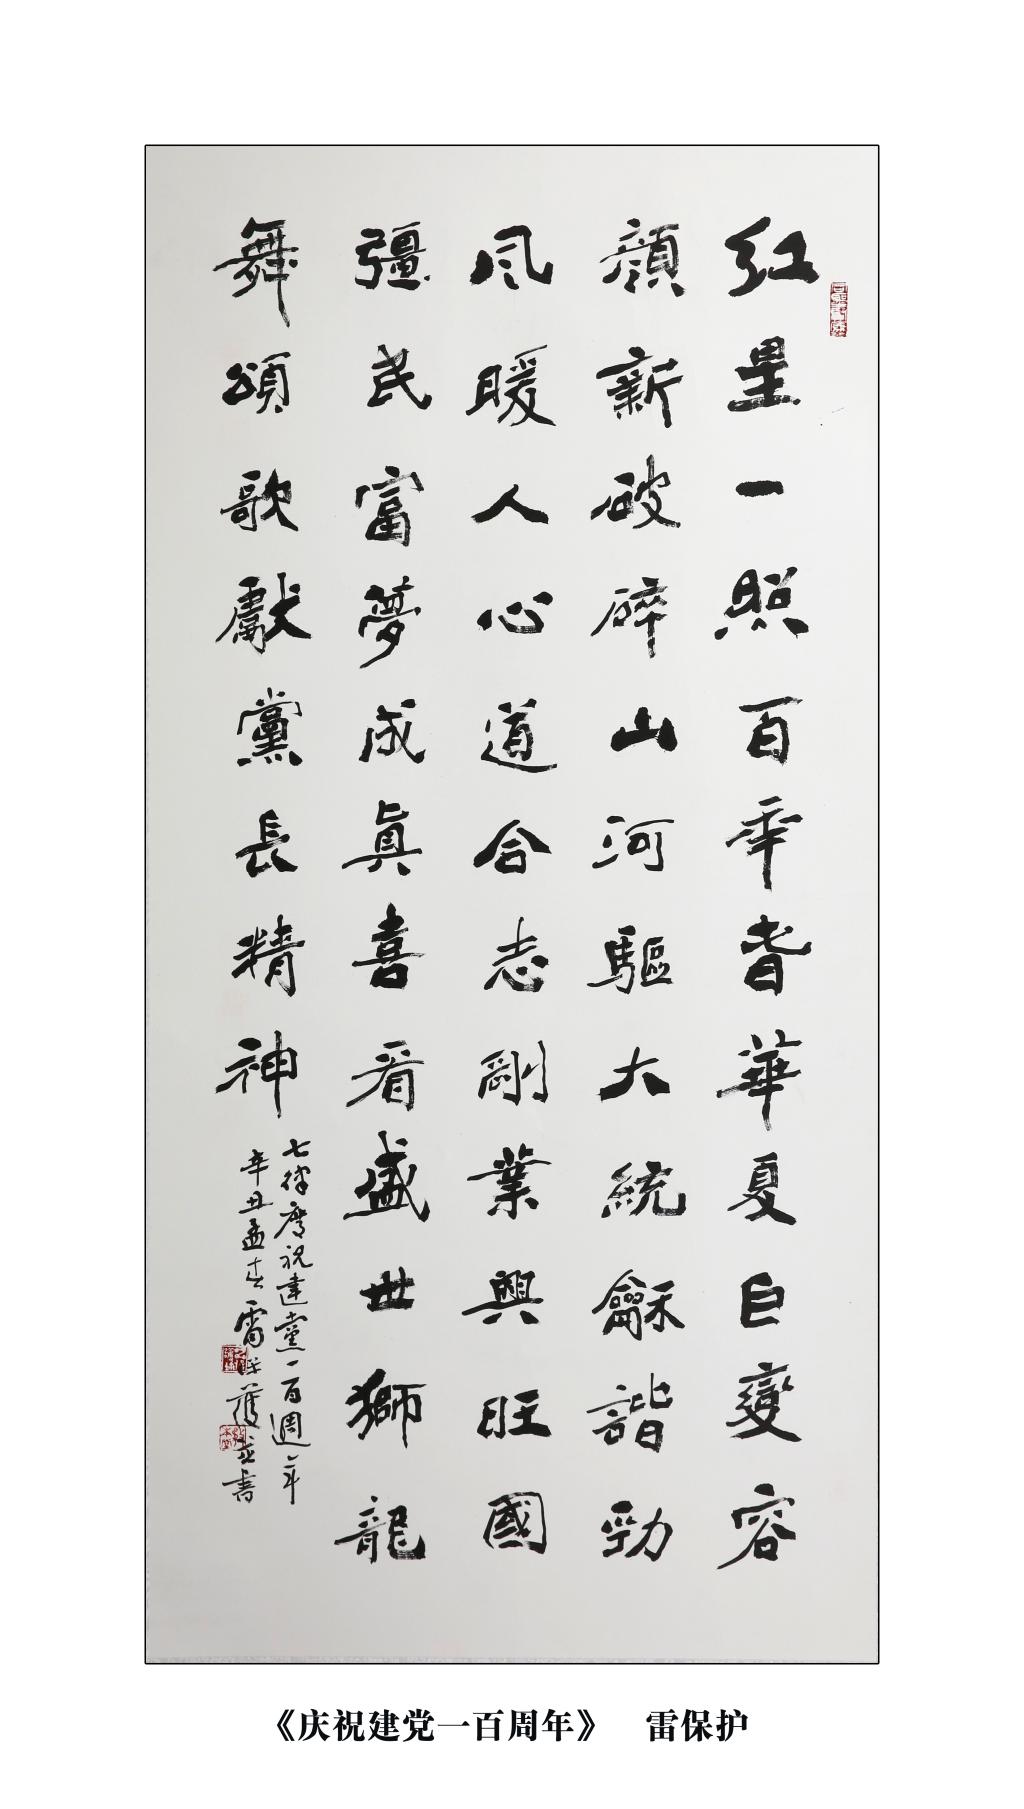 红星一照百年春華夏巨變容
顔新破碎山河驅大統龢諧勁
风暖人心道合志剛業興旺國
彊民富夢成真喜看盛世獅龍
舞頌歌獻黨長精神
七律慶祝建黨一百週年
辛丑孟春雷保護并書
《庆祝建党一百周年》 雷保护